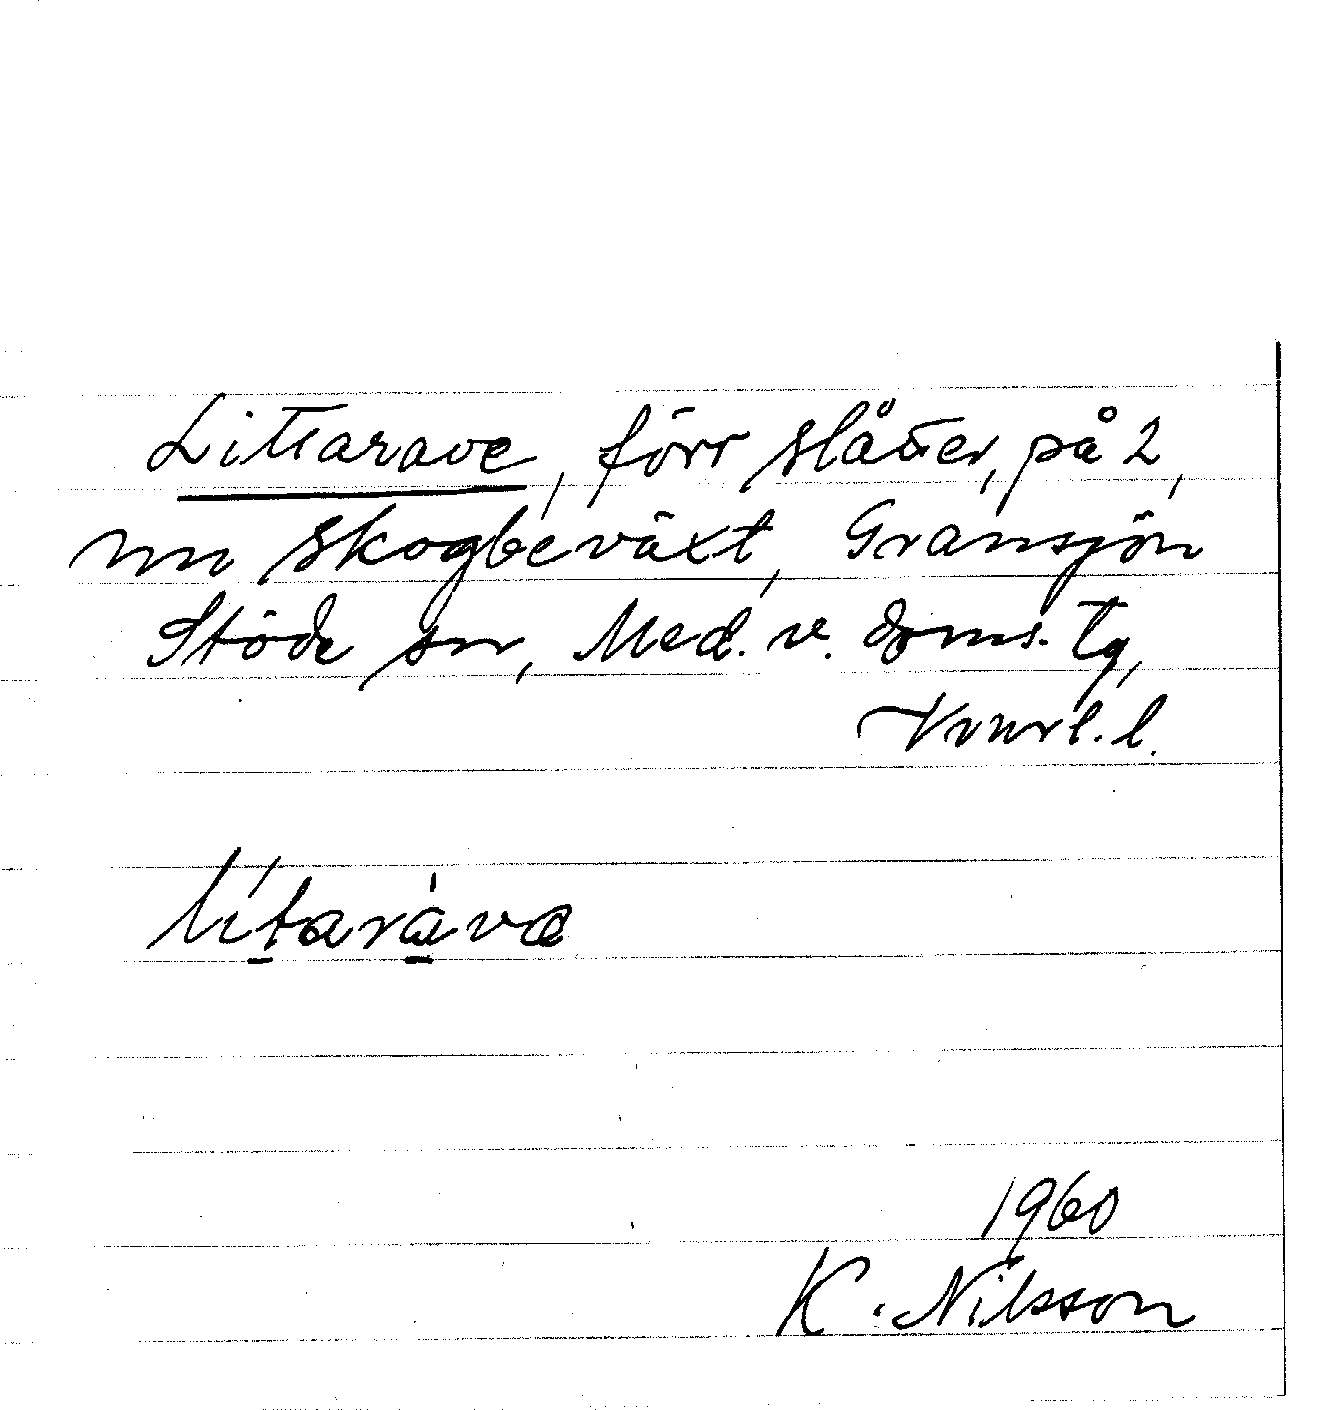 Littarave, förr slåtter, på 2,
nu skogbeväxt, Gransjön
Stöde sn, Med. v. doms. tg,
Vnorl. l.
lítaràvæ
1960
K. Nilsson